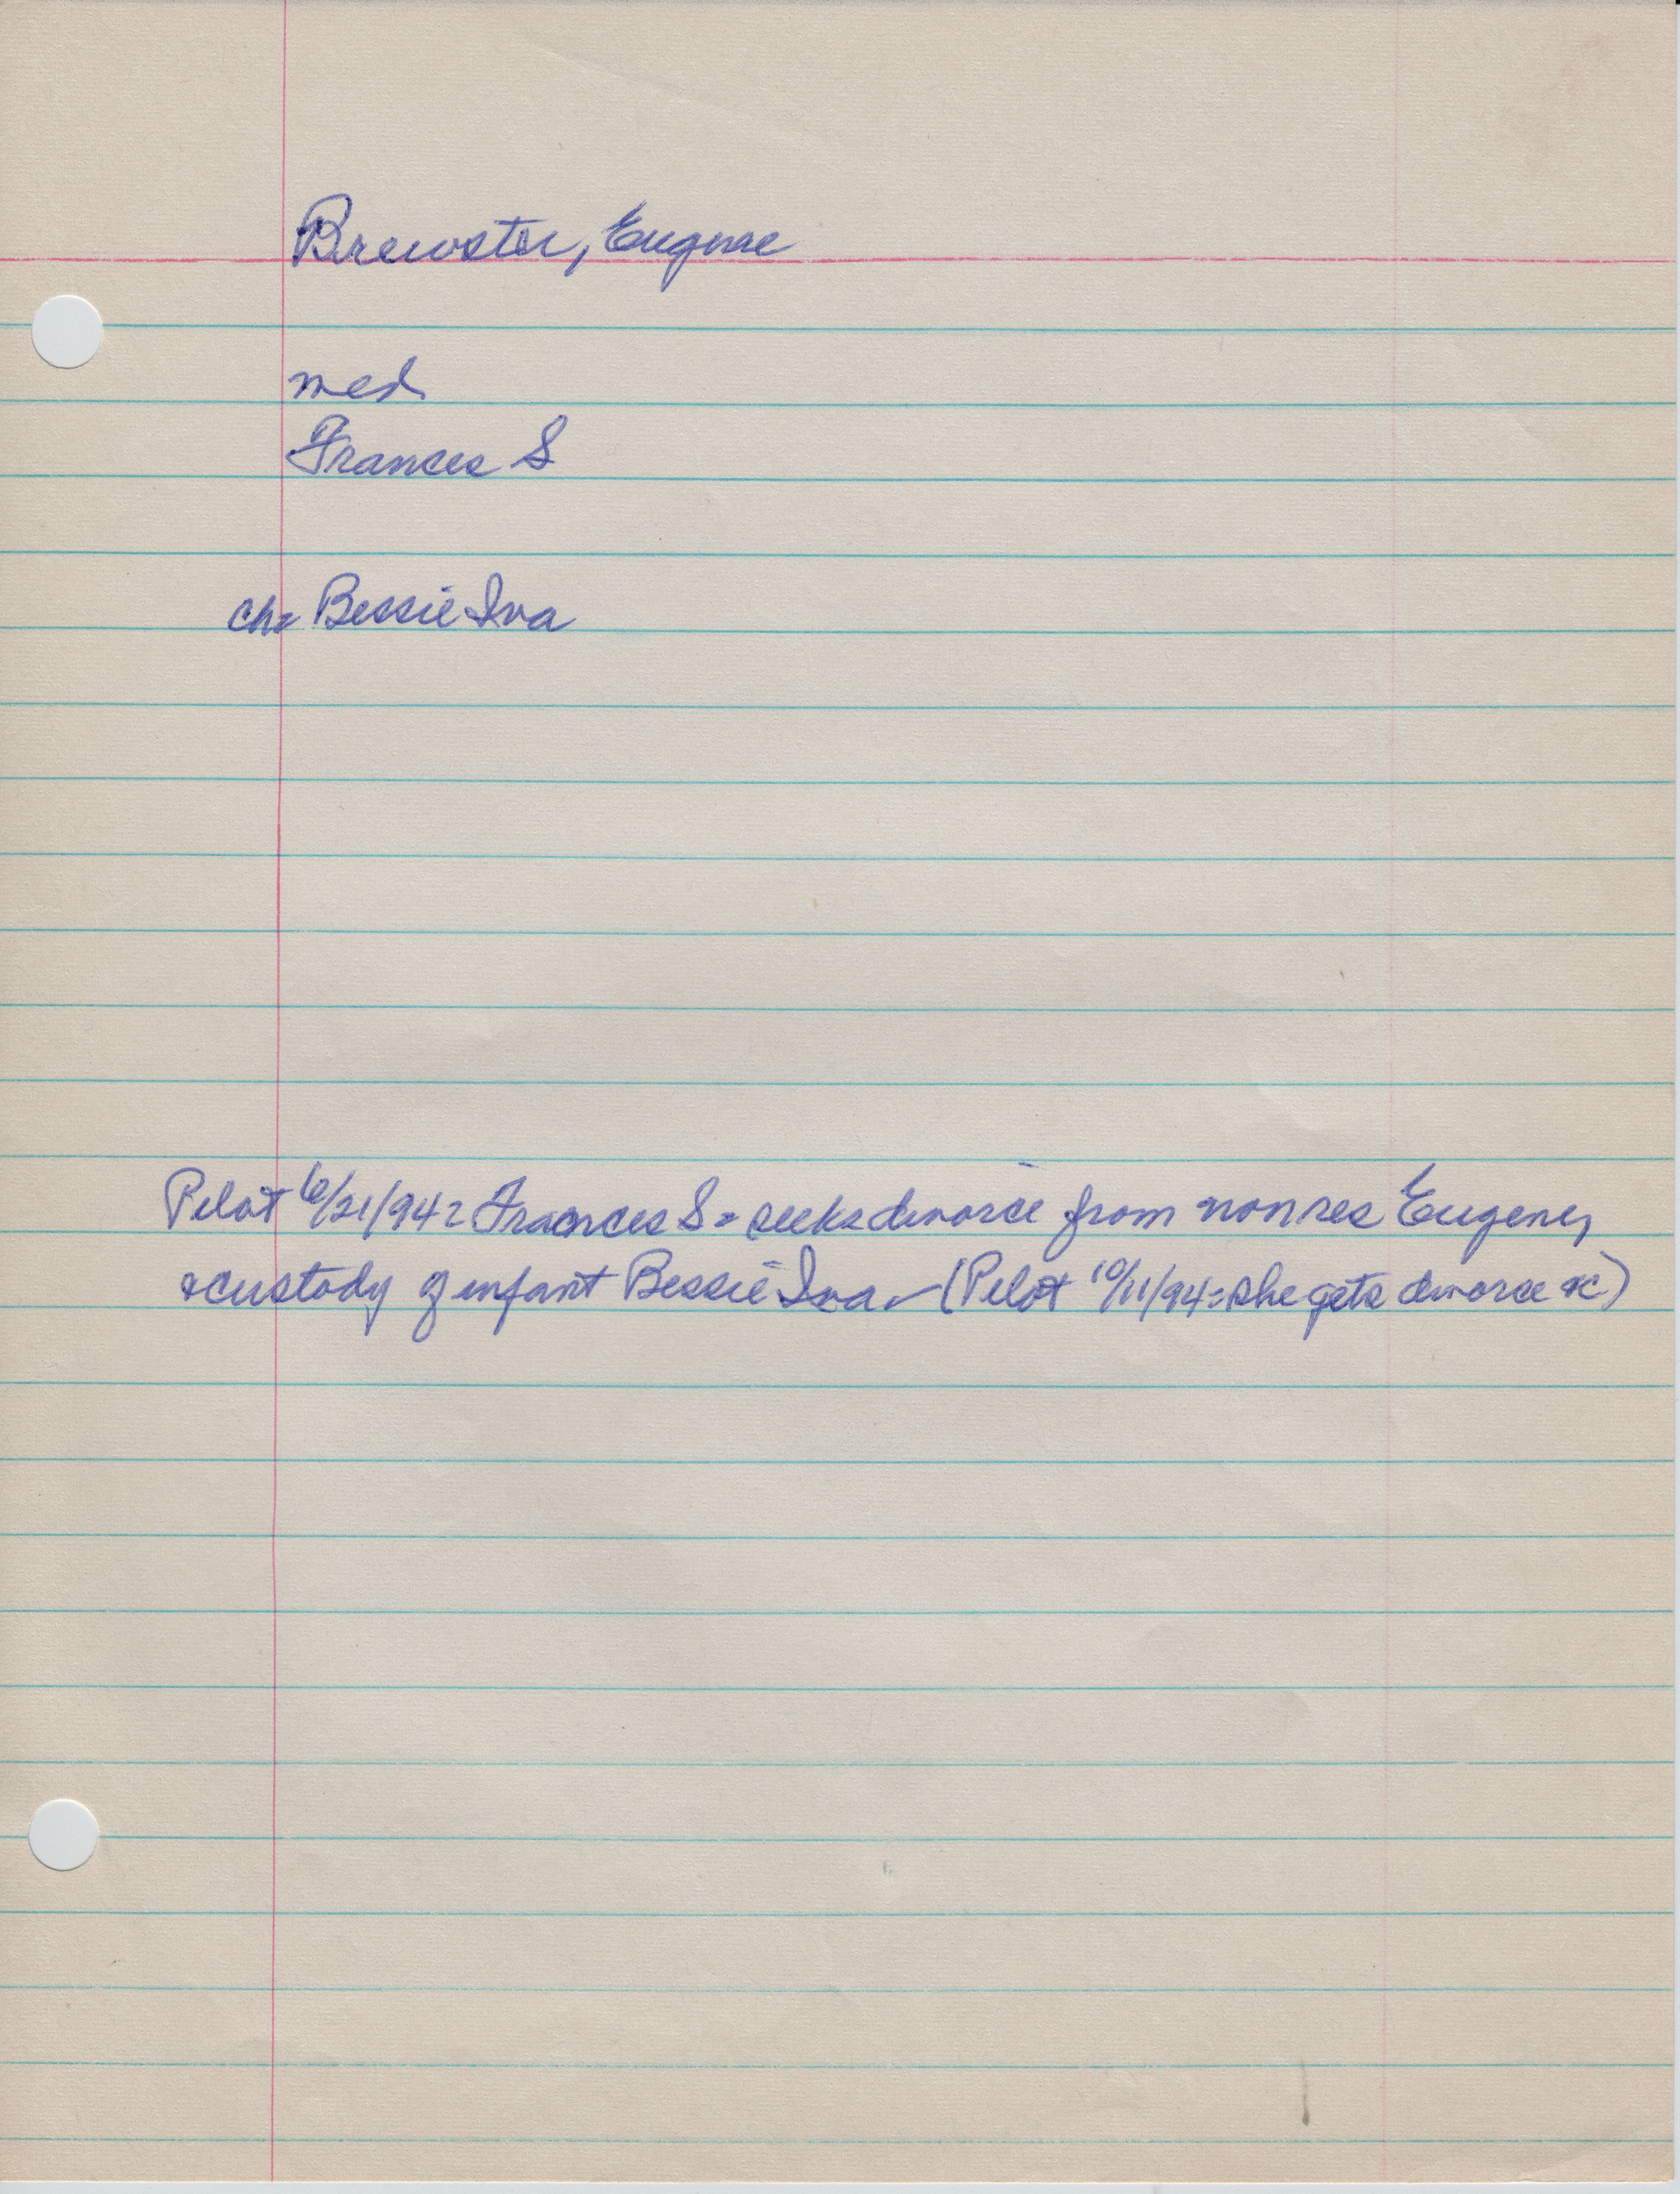 Brewster, Eugene
med
Frances S
ch= Bessie Iva
Pilot 6/21/94= Frances S= seeks divorce from non res Eugene,
& custody of infant Bessie Iva - (Pilot 10/11/94= she gets divorce &c)